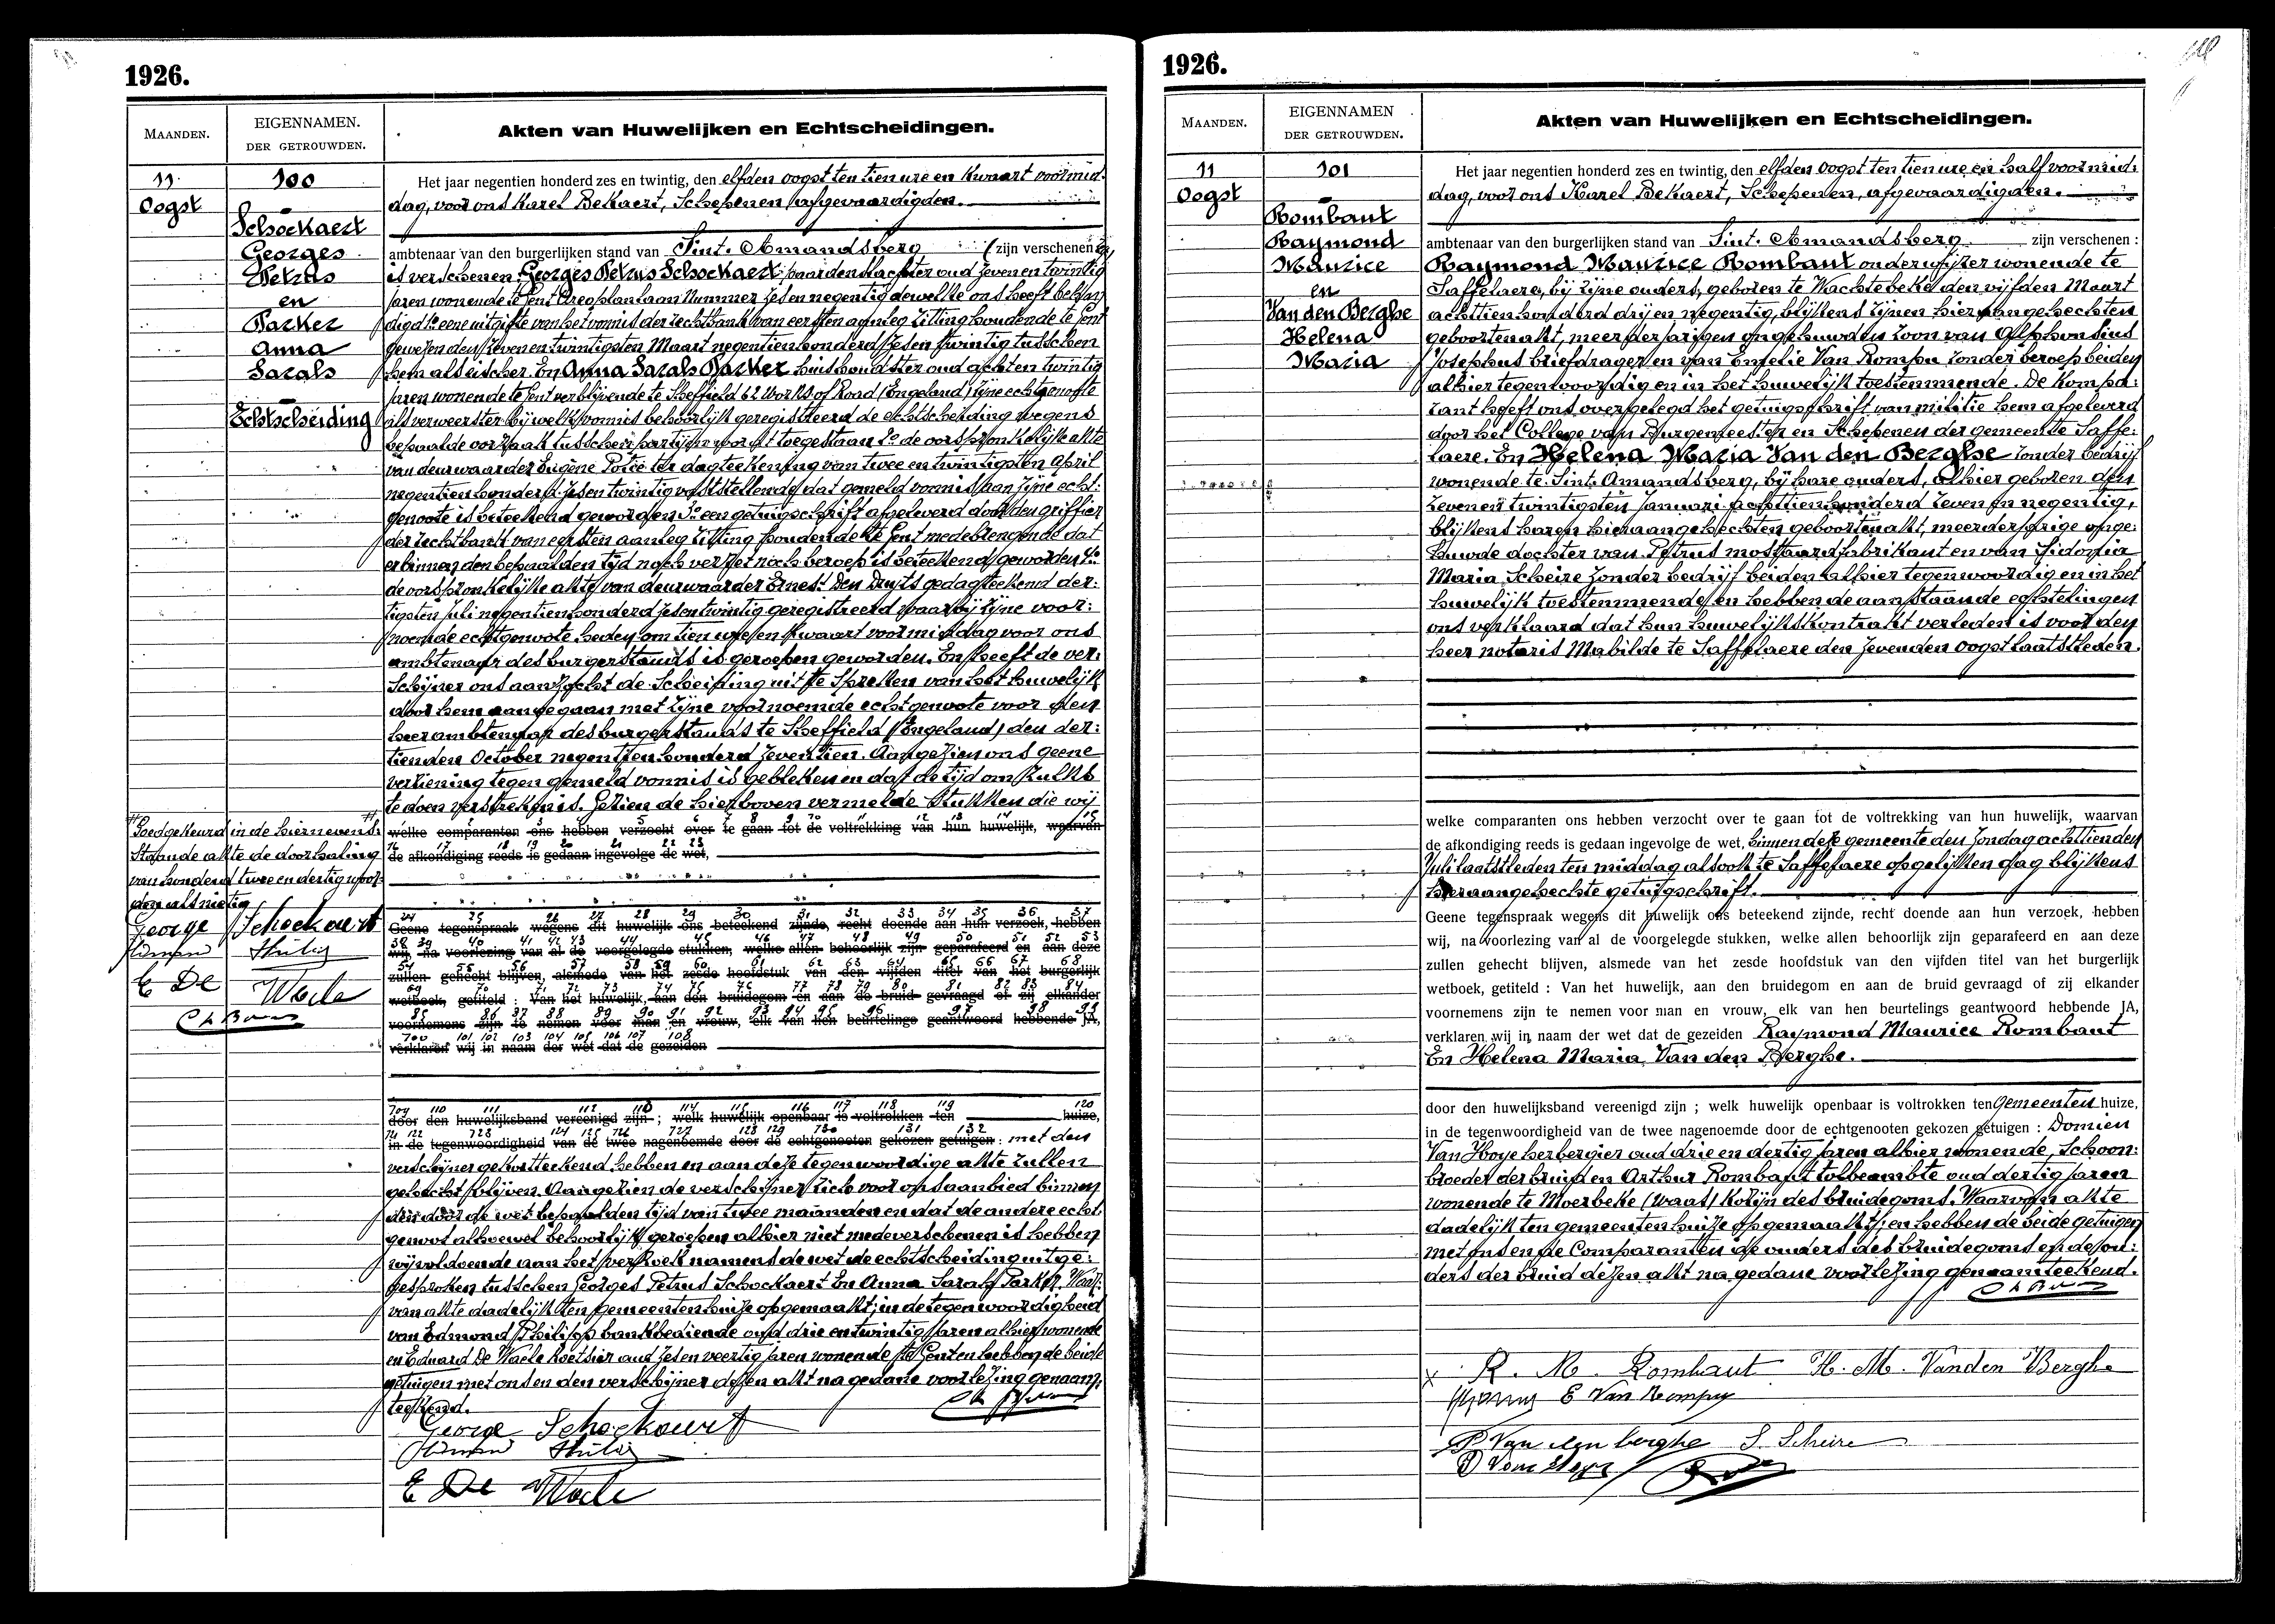 1926.
MAANDEN.
EIGENNAMEN.
DER GETROUWDEN.
Akten van Huwelijken en Echtscheidingen.
11
Oogst
100
Schockaert
Georges
Petrus
en
Parker
Anna
Sarah
Echtscheiding
Het jaar negentien honderd zes en twintig, den elfden oogst ten tien ure en kwaart voormid-
dag, voor ons Karel Bekaert, Schepenen, afgevaardigden.
ambtenaar van den burgerlijken stand van Sint-Amandsberg (zijn verschenen
is verschenen: Georges Petrus Schockaert, paardenslachter oud zeven en twintig
jaren wonende te Gent Aeroplanlaan Nummer zes en negentig dewelke ons heeft
digd 1o eene uitgifte van het vonnis der rechtbank van eersten aanleg zitting houdende te Gent
gewezen den zeven en twintigsten Maart negentien honderd zes en twintig tusschen
hem als eischer. En Anna Sarah Parker huishoudster oud acht en twintig
jaren wonende te Gent verblijvende te Sheffield 62 Works of Road (Engeland) zijne echtgenoote
als verweerster bij welk vonnis behoorlijk geregistreerd de echtscheiding wegens
bepaalde oorzaak tusschen partijen wordt toegestaan 2o de oorspronkelijke akte
van deurwaarder Eugène ter dagteekening van twee en twintigsten April
negentien honderd zes en twintig vaststellende dat gemeld vonnis aan zijne echt-
genoote is beteekend geworden 3o een getuigschrift afgeleverd door den griffier
der rechtbank van eersten aanleg zitting houdende te Gent medebrengende dat
er binnen den bepaalden tijd noch verzet noch beroep is beteekend geworden 4o
de oorspronkelijke akte van deurwaarder Ernest Den Duyts gedagteekend der-
tigsten Juli negentien honderd zes en twintig geregistreerd waarbij zijne voor-
noemde echtgenoote heden om tien ure en kwaart voormiddag voor ons
ambtenaar des burgerstands is geroepen geworden. En heeft de ver-
schijner ons aanzocht de scheiding uit te spreken van het huwelijk
door hem aangegaan met zijne voornoemde echtgenoote voor den
heer ambtenaar des burgerstands te Sheffield (Engeland) den der-
tienden October negentien honderd zeventien. Aangezien ons geene
verziening tegen gemeld vonnis is gebleken en dat de tijd om zulks
te doen verstreken is. Gezien de hierboven vermelde stukken die wij
welke comparanten ons hebben verzocht over te gaan tot de voltrekking van hun huwelijk, waarvan
de afkondiging reeds is gedaan ingevolge de wet,
Goedgekeurd in de hiernevens-
staande akte de doorhaling
van honderd twee en dertig woor-
den als nietig
George Schockaert
E De Waele
Geene tegenspraak wegens dit huwelijk ons beteekend zijnde, recht doende aan hun verzoek, hebben
wij, na voorlezing van al de voorgelegde stukken, welke allen behoorlijk zijn geparafeerd en aan deze
zullen gehecht blijven, alsmede van het zesde hoofdstuk van den vijfden titel van het burgerlijk
wetboek, getiteld : Van het huwelijk, aan den bruidegom en aan de bruid gevraagd of zij elkander
voornemens zijn te nemen voor man en vrouw, elk van hen beurtelings geantwoord hebbende JA,
verklaren wij in naam der wet dat de gezeiden
door den huwelijksband vereenigd zijn ; welk huwelijk openbaar is voltrokken ten huize,
in de tegenwoordigheid van de twee nagenoemde door de echtgenooten gekozen getuigen : met den
verschijner gekortteekend hebben en aan deze tegenwoordige akte zullen
gehecht blijven. Aangezien de verschijner zich voor ons aanbied binnen
den door de wet bepaalden tijd van twee maanden en dat de andere echt-
genoot alhoewel behoorlijk geroepen alhier niet medeverschenen is hebben
wij voldoende aan het verzoek namens de wet de echtscheiding uitge-
gesproken tusschen Georges Petrus Schockaert En Anna Sarah Parker, Waar-
van akte dadelijk ten gemeentenhuize opgemaakt; in de tegenwoordigheid
van Edmond Philips bankbediende oud drie en twintig jaren alhier wonende
en Eduard De Waele koetsier oud zes en veertig jaren wonende te Gent en hebben de beide
getuigen met ons en den verschijner dezen akt na gedane voorlezing genaam-
teekend.
George Schockaert
E De Waele
1926.
MAANDEN.
EIGENNAMEN
DER GETROUWDEN.
Akten van Huwelijken en Echtscheidingen.
11
Oogst
101
Rombaut
Raymond
Maurice
en
Van den Berghe
Helena
Maria
Het jaar negentien honderd zes en twintig, den elfden oogst ten tien ure en half voormid-
dag, voor ons Karel Bekaert, Schepenen, afgevaardigden.
ambtenaar van den burgerlijken stand van Sint-Amandsberg zijn verschenen :
Raymond Maurice Rombaut onderwijzer wonende te
Saffelaere, bij zijne ouders, geboren te Wachtebeke den vijfden Maart
achttien honderd drij en negentig, blijkens zijnen hieraangehechten
geboortenakt, meerderjarigen ongehuwden zoon van Alphonsius
Josephus briefdrager en van Emelie Van Rompu zonder beroep beiden
alhier tegenwoordig en in het huwelijk toestemmende. De kompa-
rant heeft ons overgelegd het getuigschrift van militie hem afgeleverd
door het College van Burgemeester en Schepenen der gemeente Saffe-
laere. En Helena Maria Van den Berghe zonder bedrijf
wonende te Sint-Amandsberg, bij hare ouders, alhier geboren den
zeven en twintigsten Januari achttien honderd zeven en negentig,
blijkens haren hieraangehechten geboortenakt, meerderjarige onge-
huwde dochter van Petrus mostaardfabrikant en van Sidonia
Maria Scheire zonder bedrijf beiden alhier tegenwoordig en in het
huwelijk toestemmende, en hebben de aanstaande echtelingen
ons verklaard dat hun huwelijkskontrakt verleden is voor den
heer notaris Mabilde te Saffelaere den zevenden oogst laatstleden.
welke comparanten ons hebben verzocht over te gaan tot de voltrekking van hun huwelijk, waarvan
de afkondiging reeds is gedaan ingevolge de wet, binnen deze gemeente den zondag achttienden
Juli laatstleden ten middag alsook te Saffelaere op gelijken dag blijkens
hieraangehechte getuigschrift.
Geene tegenspraak wegens dit huwelijk ons beteekend zijnde, recht doende aan hun verzoek, hebben
wij, na voorlezing van al de voorgelegde stukken, welke allen behoorlijk zijn geparafeerd en aan deze
zullen gehecht blijven, alsmede van het zesde hoofdstuk van den vijfden titel van het burgerlijk
wetboek, getiteld : Van het huwelijk, aan den bruidegom en aan de bruid gevraagd of zij elkander
voornemens zijn te nemen voor man en vrouw, elk van hen beurtelings geantwoord hebbende JA,
verklaren wij in naam der wet dat de gezeiden Raymond Maurice Rombaut
En Helena Maria Van den Berghe.
door den huwelijksband vereenigd zijn ; welk huwelijk openbaar is voltrokken ten Gemeenten huize,
in de tegenwoordigheid van de twee nagenoemde door de echtgenooten gekozen getuigen : Domien
Van Hoye herbergier oud drie en dertig jaren alhier wonende, Schoon-
broeder der bruid en Arthur Rombaut tolbeambte oud dertig jaren
wonende te Moerbeke (Waas) kozijn des bruidegoms. Waarvan akte
dadelijk ten gemeentenhuize opgemaakt; en hebben de beide getuigen
met ons en de Comparanten de ouders des bruidegoms en de ou-
ders der bruid dezen akt na gedane voorlezing genaamteekend.
R. M. Rombaut H. M. Vanden Berghe
E Van Rompu
P Van den berghe S. Scheire